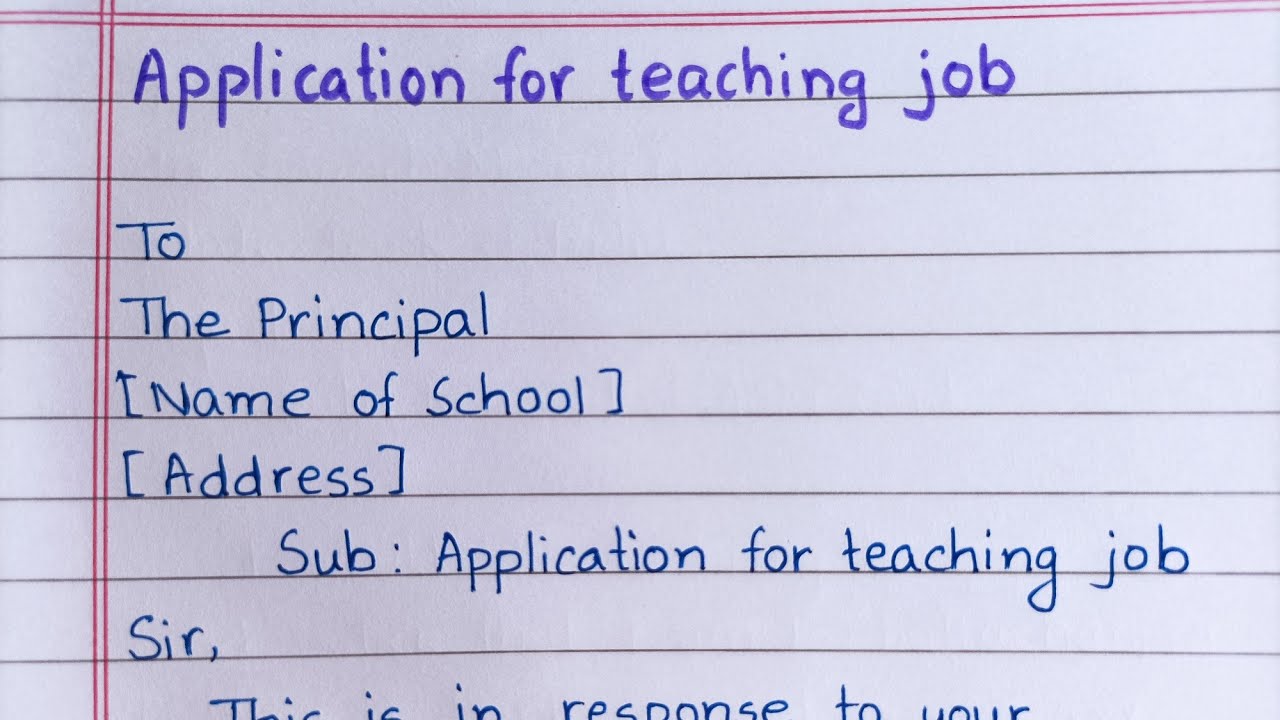 Application for teaching job
To
The Principal
[Name of School]
[Address]
Sub: Application for teaching job
Sir,
This is in response to your